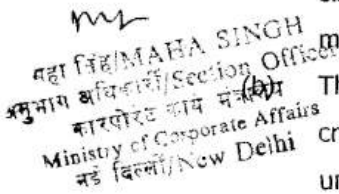 महा सिंह/MAHA SINGH
अनुभाग अधिकारी/Section Officer
कारपोरेट कार्य मंत्रालय
(b)
Ministry of Corporate Affairs
नई दिल्ली/New Delhi